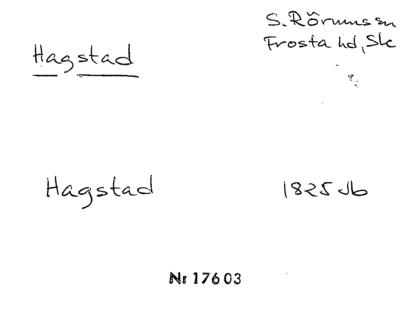 Hagstad
S. Rörums sn
Frosta hd, Sk
Hagstad
1825 Jb
Nr 17603